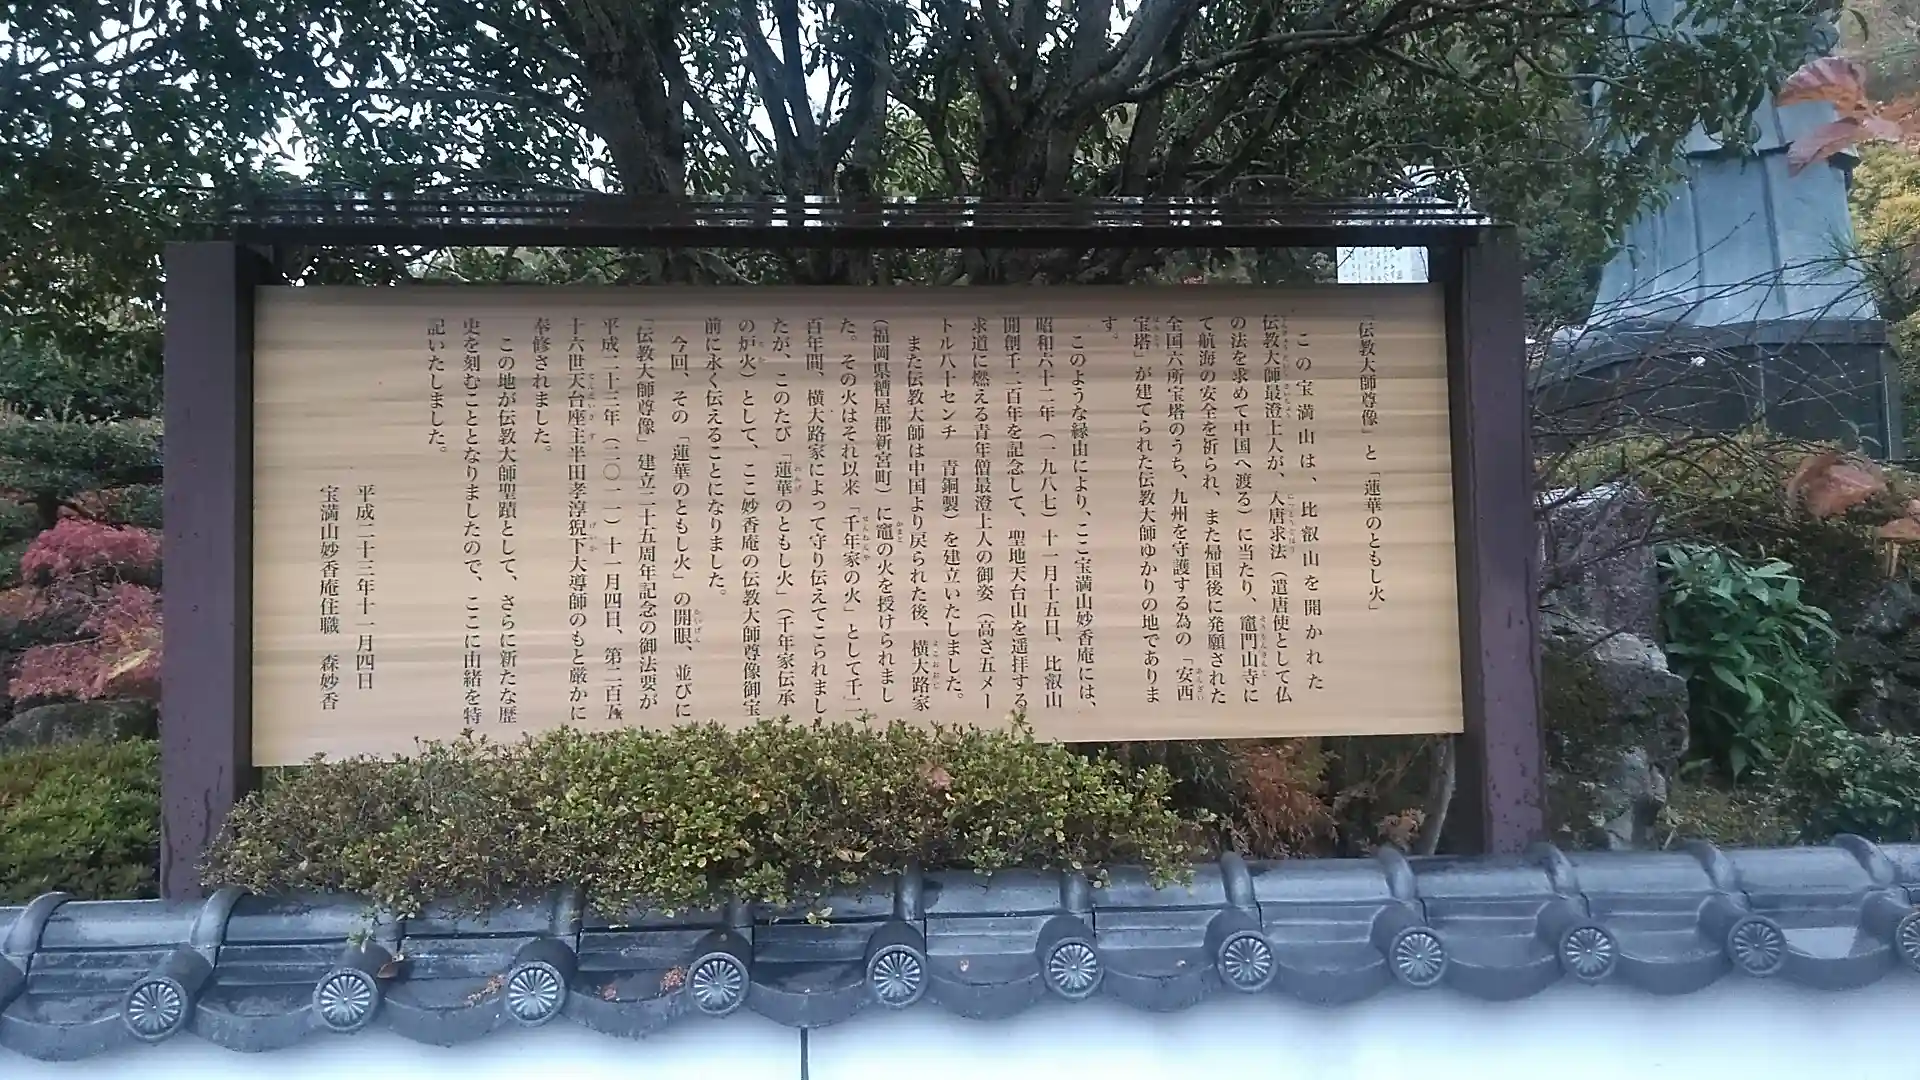 『伝教大師尊像』と「蓮華のともし火」
この宝満山は、比叡山を開かれた
伝教大師最澄上人が、入唐求法（遣唐使として仏
の法を求めて中国へ渡る）に当たり、竈門山寺に
て航海の安全を祈られ、また帰国後に発願された
全国六所宝塔のうち、九州を守護する為の「安西
宝塔」が建てられた伝教大師ゆかりの地でありま
す。
このような縁由により、ここ宝満山妙香庵には、
昭和六十二年（一九八七）十一月十五日、比叡山
開創千二百年を記念して、聖地天台山を遥拝する
求道に燃える青年僧最澄上人の御姿（高さ五メー
トル八十センチ　青銅製）を建立いたしました。
また伝教大師は中国より戻られた後、横大路家
（福岡県糟屋郡新宮町）に竈の火を授けられまし
た。その火はそれ以来「千年家の火」として千二
百年間、横大路家によって守り伝えてこられまし
たが、このたび「蓮華のともし火」（千年家伝承
の炉火）として、ここ妙香庵の伝教大師尊像御宝
前に永く伝えることになりました。
今回、その「蓮華のともし火」の開眼、並びに
『伝教大師尊像』建立二十五周年記念の御法要が
平成二十三年（二〇一一）十一月四日、第二百五
十六世天台座主半田孝淳猊下大導師のもと厳かに
奉修されました。
この地が伝教大師聖蹟として、さらに新たな歴
史を刻むこととなりましたので、ここに由緒を特
記いたしました。
平成二十三年十一月四日
宝満山妙香庵住職　森妙香